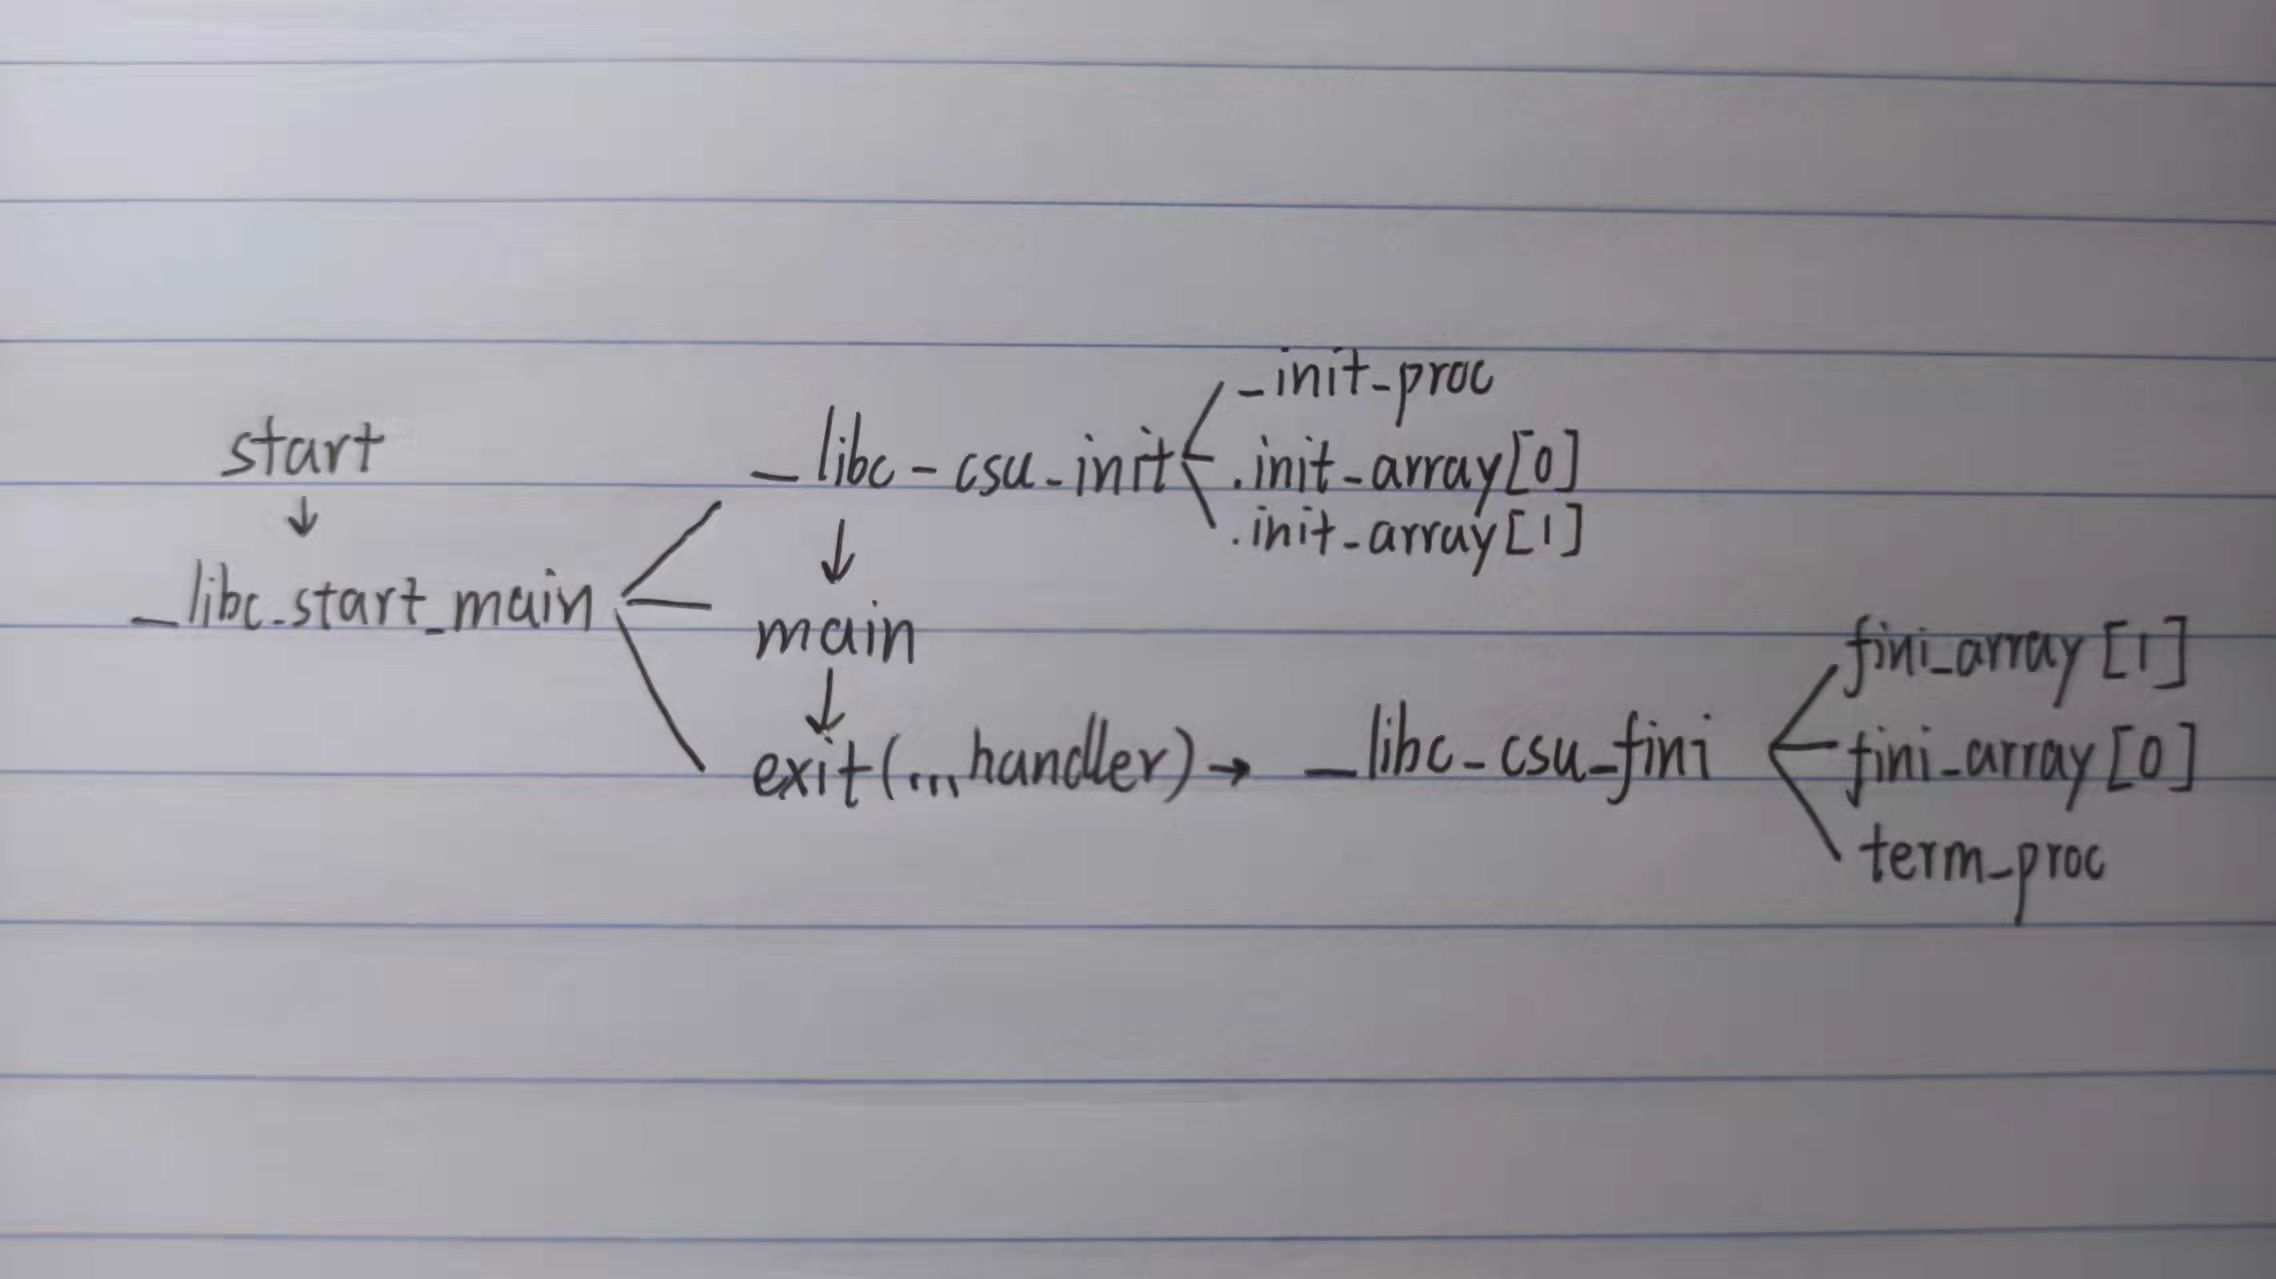 start
↓
_libc_start_main
_libc-csu_init
_init-proc
.init-array[0]
.init-array[1]
↓
main
↓
exit(...handler)→ _libc-csu_fini
fini_array[1]
fini-array[0]
term_proc